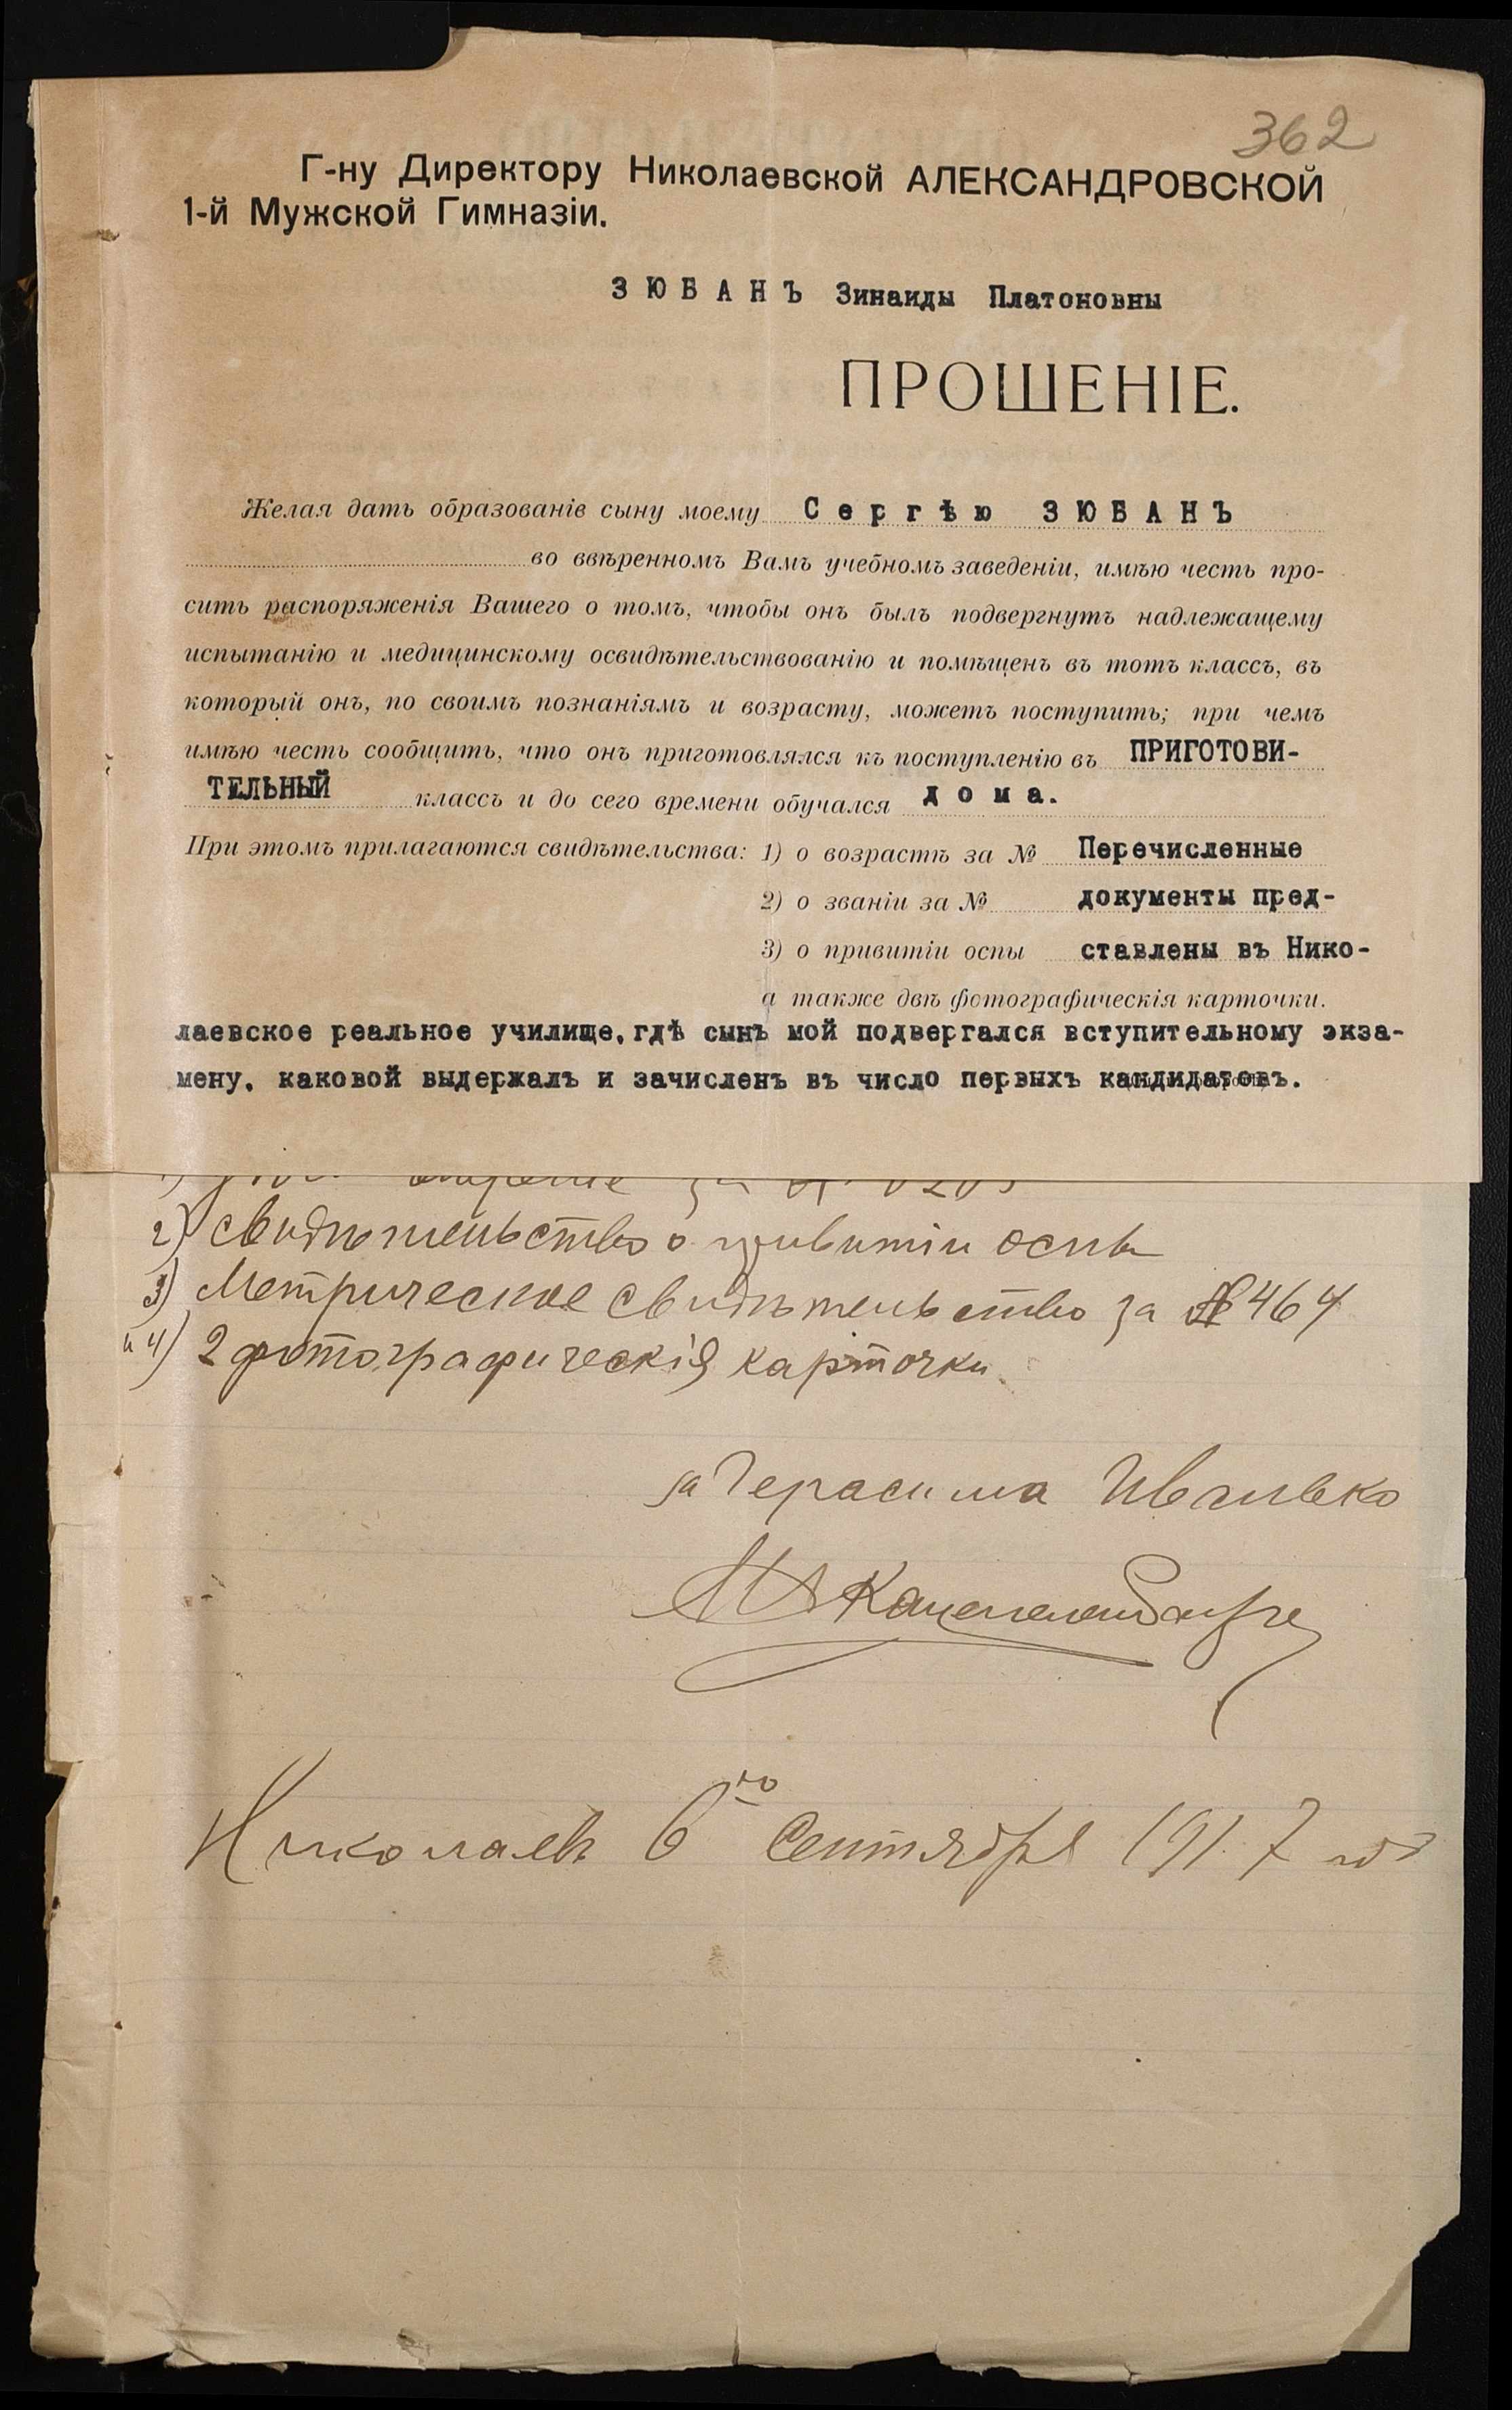 362
Г-ну Директору Николаевской АЛЕКСАНДРОВСКОЙ
1-й Мужской Гимназіи.
ЗЮБАНЪ Зинаиды Платоновны
ПРОШЕНІЕ.
Желая дать образованіе сыну моему Сергѣю ЗЮБАНЪ
во ввѣренномъ Вамъ учебномъ заведеніи, имѣю честь про-
сить распоряженія Вашего о томъ, чтобы онъ былъ подвергнутъ надлежащему
испытанію и медицинскому освидѣтельствованію и помѣщенъ въ тотъ классъ, въ
который онъ, по своимъ познаніямъ и возрасту, можетъ поступить; при чемъ
имѣю честь сообщить, что онъ приготовлялся къ поступленію въ ПРИГОТОВИ-
ТЕЛЬНЫЙ классъ и до сего времени обучался дома.
При этомъ прилагаются свидѣтельства: 1) о возрастѣ за № Перечисленные
2) о званіи за № документы пред-
3) о привитіи оспы ставлены въ Нико-
а также двѣ фотографическія карточки.
лаевское реальное училище, гдѣ сынъ мой подвергался вступительному экза-
мену, каковой выдержалъ и зачисленъ въ число первыхъ кандидатовъ.
2) Свидѣтельство о привитіи оспы
3) Метрическое свидѣтельство за № 464
и 4) 2 фотографическія карточки
за Герасима Иванько
Николаевъ 6го Сентября 1917 год